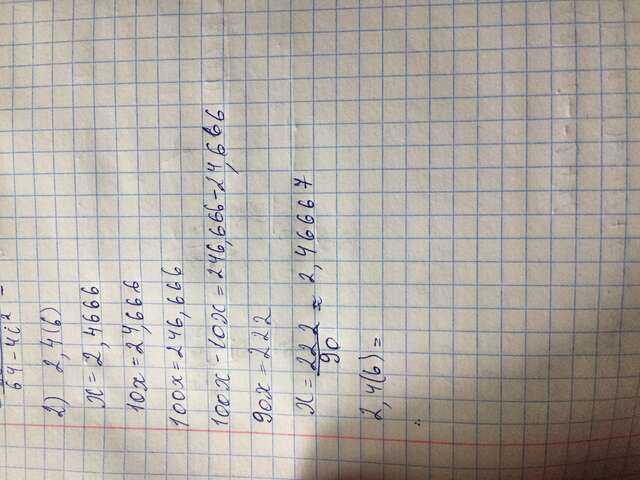 64-4i²
2) 2,4(6)
x = 2,4666
10x = 24,666
100x = 246,666
100x - 10x = 246,666 - 24,666
90x = 222
x = 222/90 = 2,46667
2,4(6) =